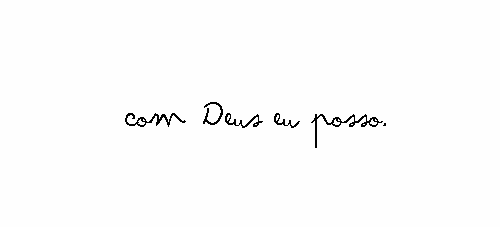 com Deus eu posso.